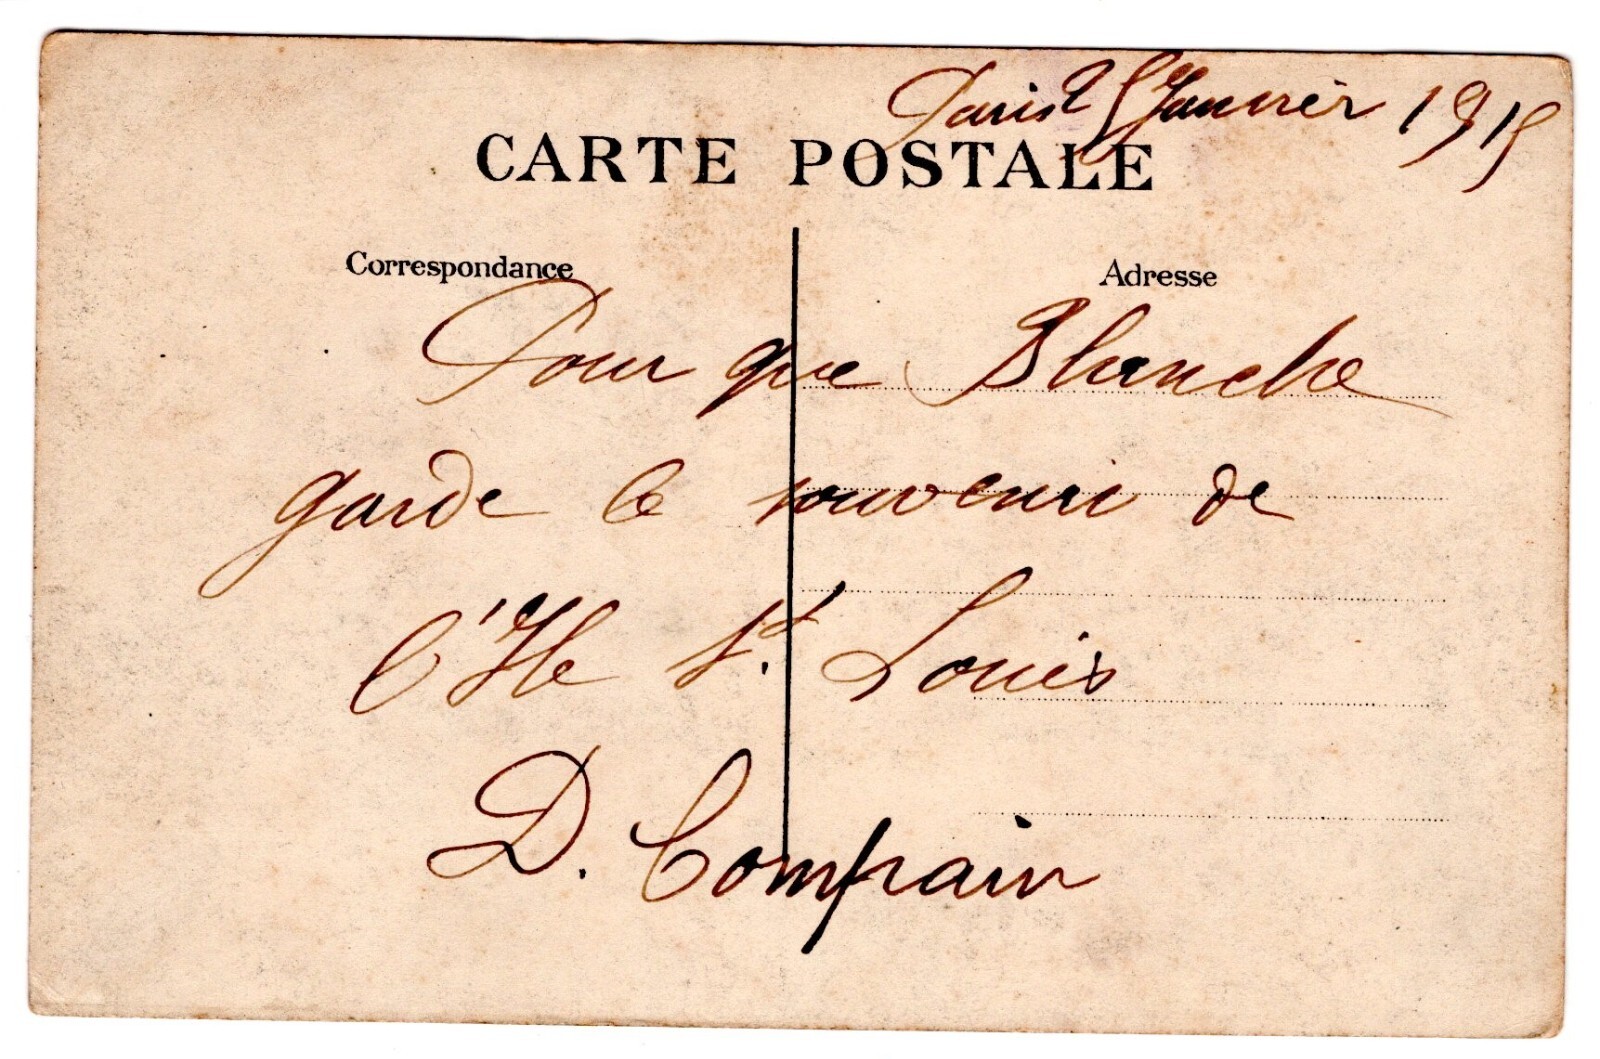 Paris 25 Janvier 1915
CARTE POSTALE
Correspondance
Adresse
Pour que Blanche
garde le souvenir de
l'Ile St. Louis
D. Compain